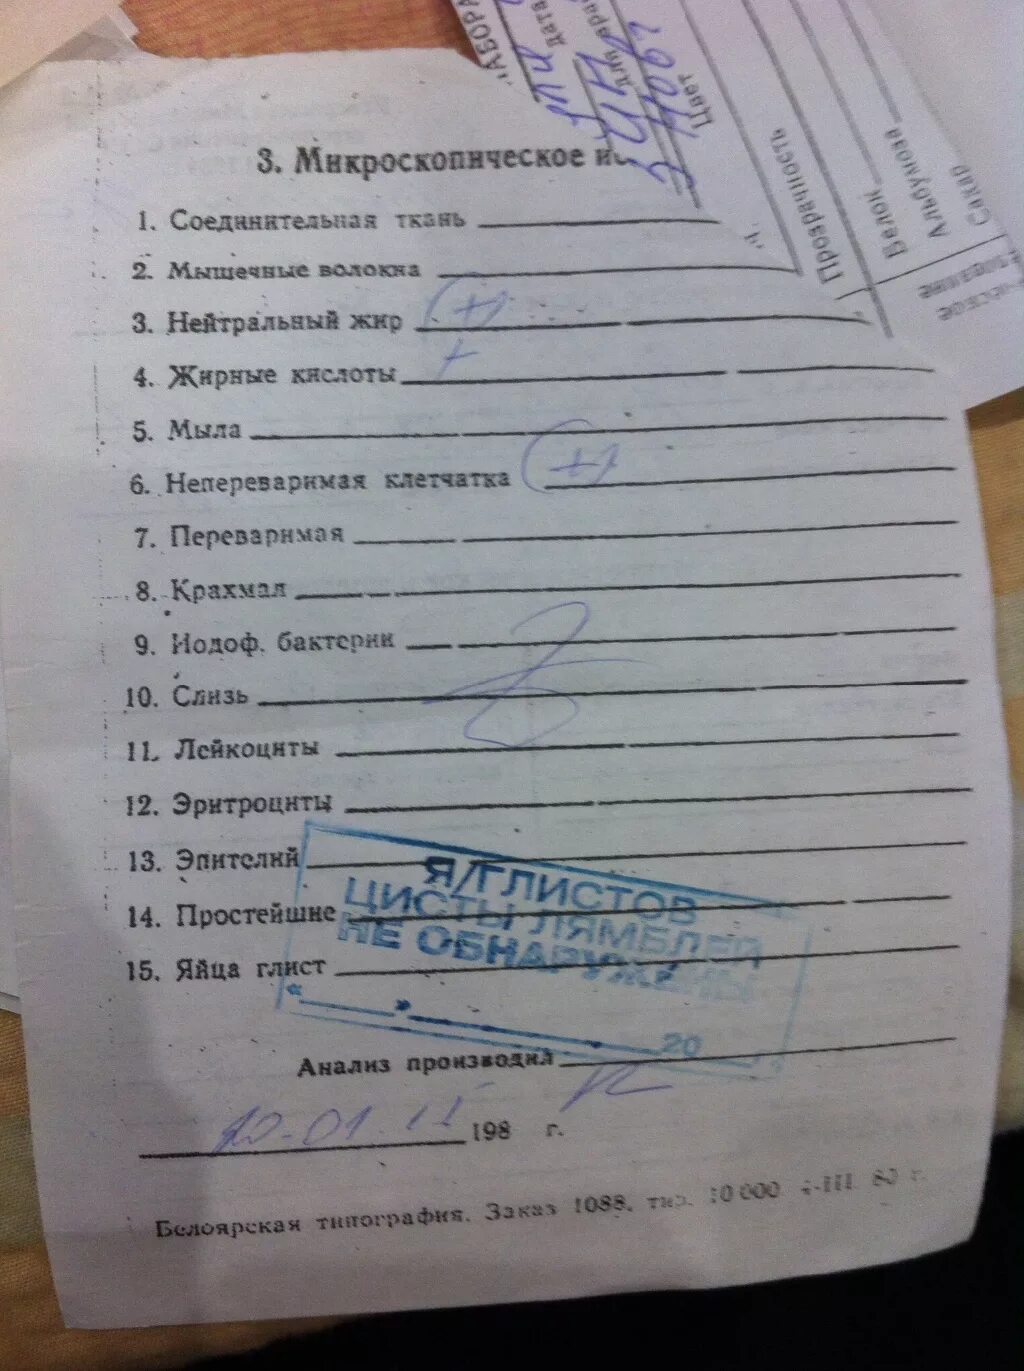 3. Микроскопическое
1. Соединительная ткань
2. Мышечные волокна
3. Нейтральный жир (+)
4. Жирные кислоты +
5. Мыла
6. Непереваримая клетчатка (+)
7. Переваримая
8. Крахмал
9. Иодоф. бактерии
10. Слизь
11. Лейкоциты
12. Эритроциты
13. Эпителий
14. Простейшие
15. Яйца глист
Я/ГЛИСТОВ
ЦИСТЫ ЛЯМБЛЕЙ
НЕ ОБНАРУЖЕНЫ
« » 20
Анализ производил
01. 11 198 г.
Белоярская типография. Заказ 1088. тир. 10 000
Дата
Цвет
Прозрачность
Белок
Альбумоза
Сахар